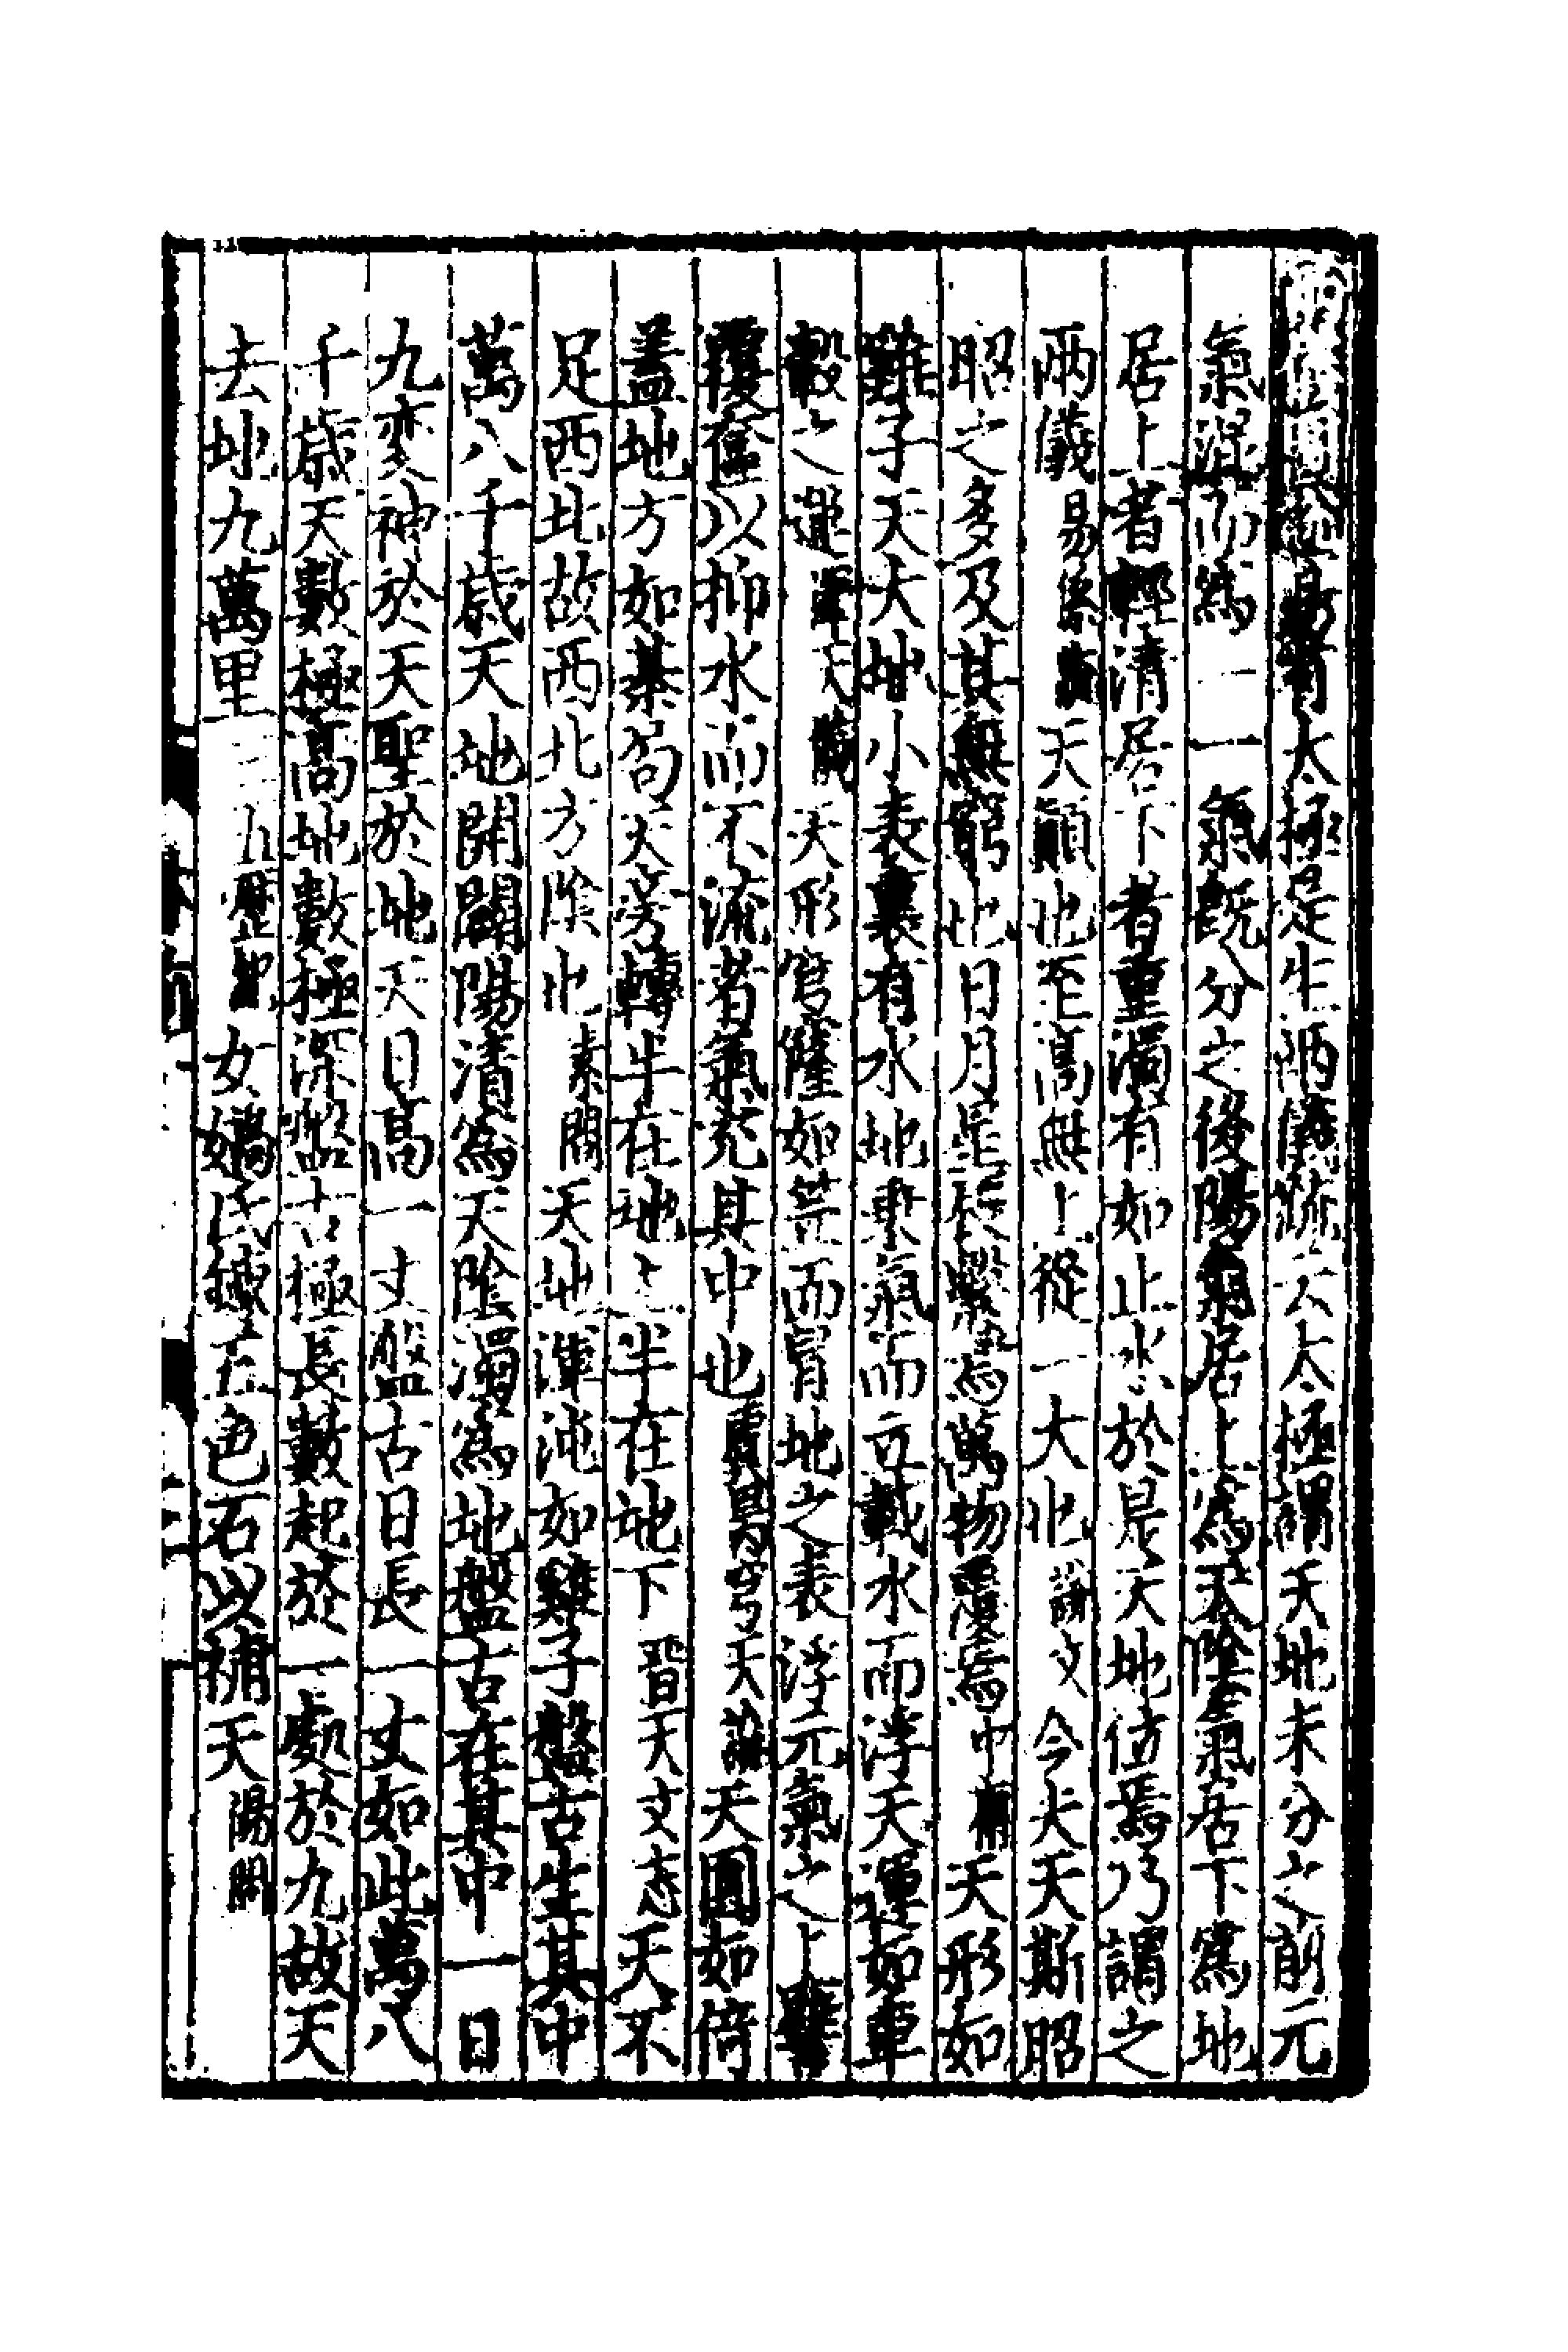 易有太極是生兩儀疏云太極謂天地未分之前元
氣混而爲一一氣既分之後陽氣居上爲天陰氣居下爲地
居上者輕清居下者重濁有如止水於是天地位焉乃謂之
兩儀易係疏天顚也至高無上從一大也說文今夫天斯昭
昭之多及其無窮也日月星辰繫焉萬物覆焉中庸天形如
雞子天大地小表裏有水地乗氣而立載水而浮天運如車
轂之運渾天儀天形穹隆如笠而冒地之表浮元氣之上譬
覆奩以抑水而不流者氣充其中也虞昺穹天論天圓如倚
盖地方如棊局天旁轉半在地上半在地下晉天文志天不
足西北故西北方陰也素問天地渾沌如雞子盤古生其中
萬八千歲天地開闢陽清爲天陰濁爲地盤古在其中一日
九変神於天聖於地天日高一丈盤古日長一丈如此萬八
千歲天數極高地數極深盤古極長數起於一處於九故天
去地九萬里三五歷記女媧氏鍊五色石以補天